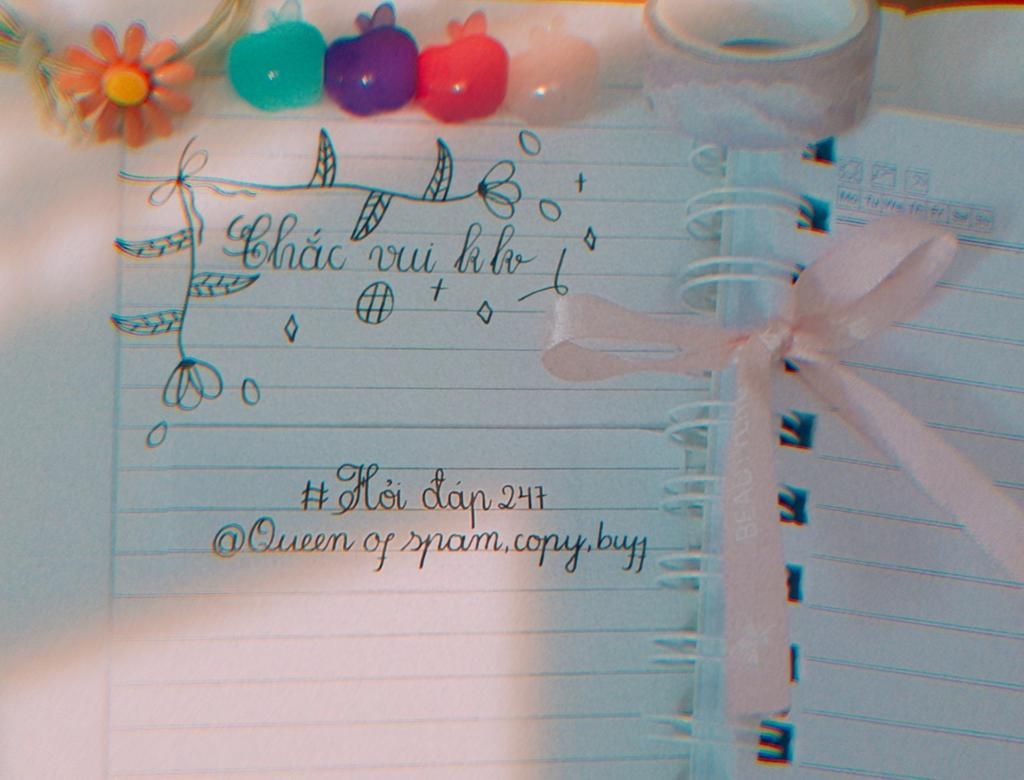 Chắc vui khv
#Hỏi đáp 247
@Queen of spam, copy, buff